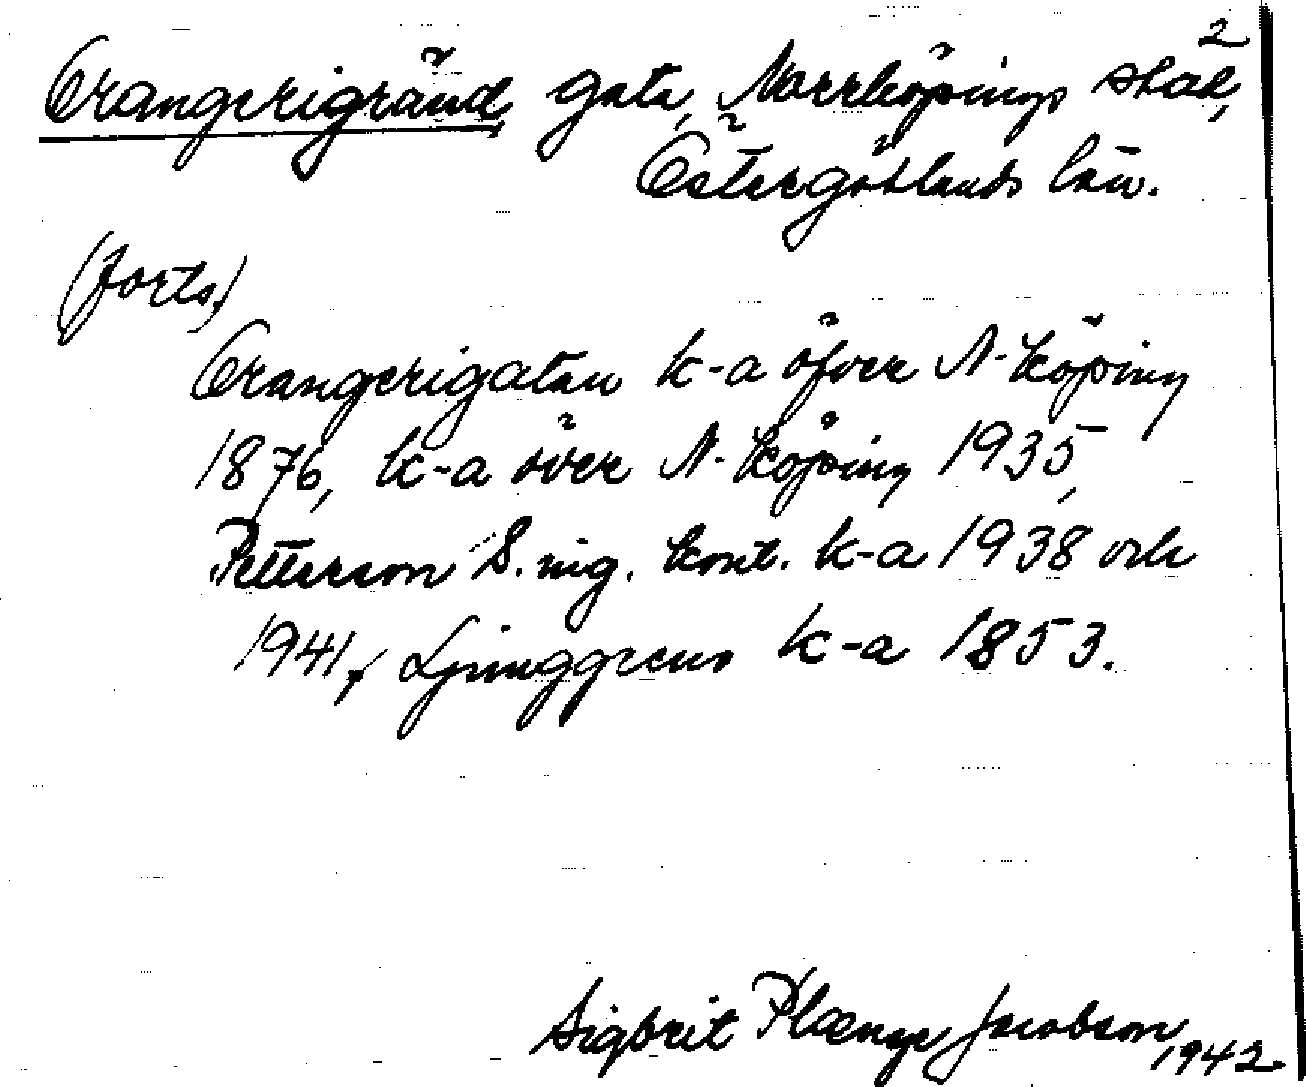 2
Orangerigränd, gata, Norrköpings stad,
Östergötlands län.
(forts.)
Orangerigatan k-a öfver N-köping
1876, k-a över N-köping 1935,
Petterson S. ing. kont. k-a 1938 och
1941, Ljunggrens k-a 1853.
Sigbrit Plænge Jacobson
1942